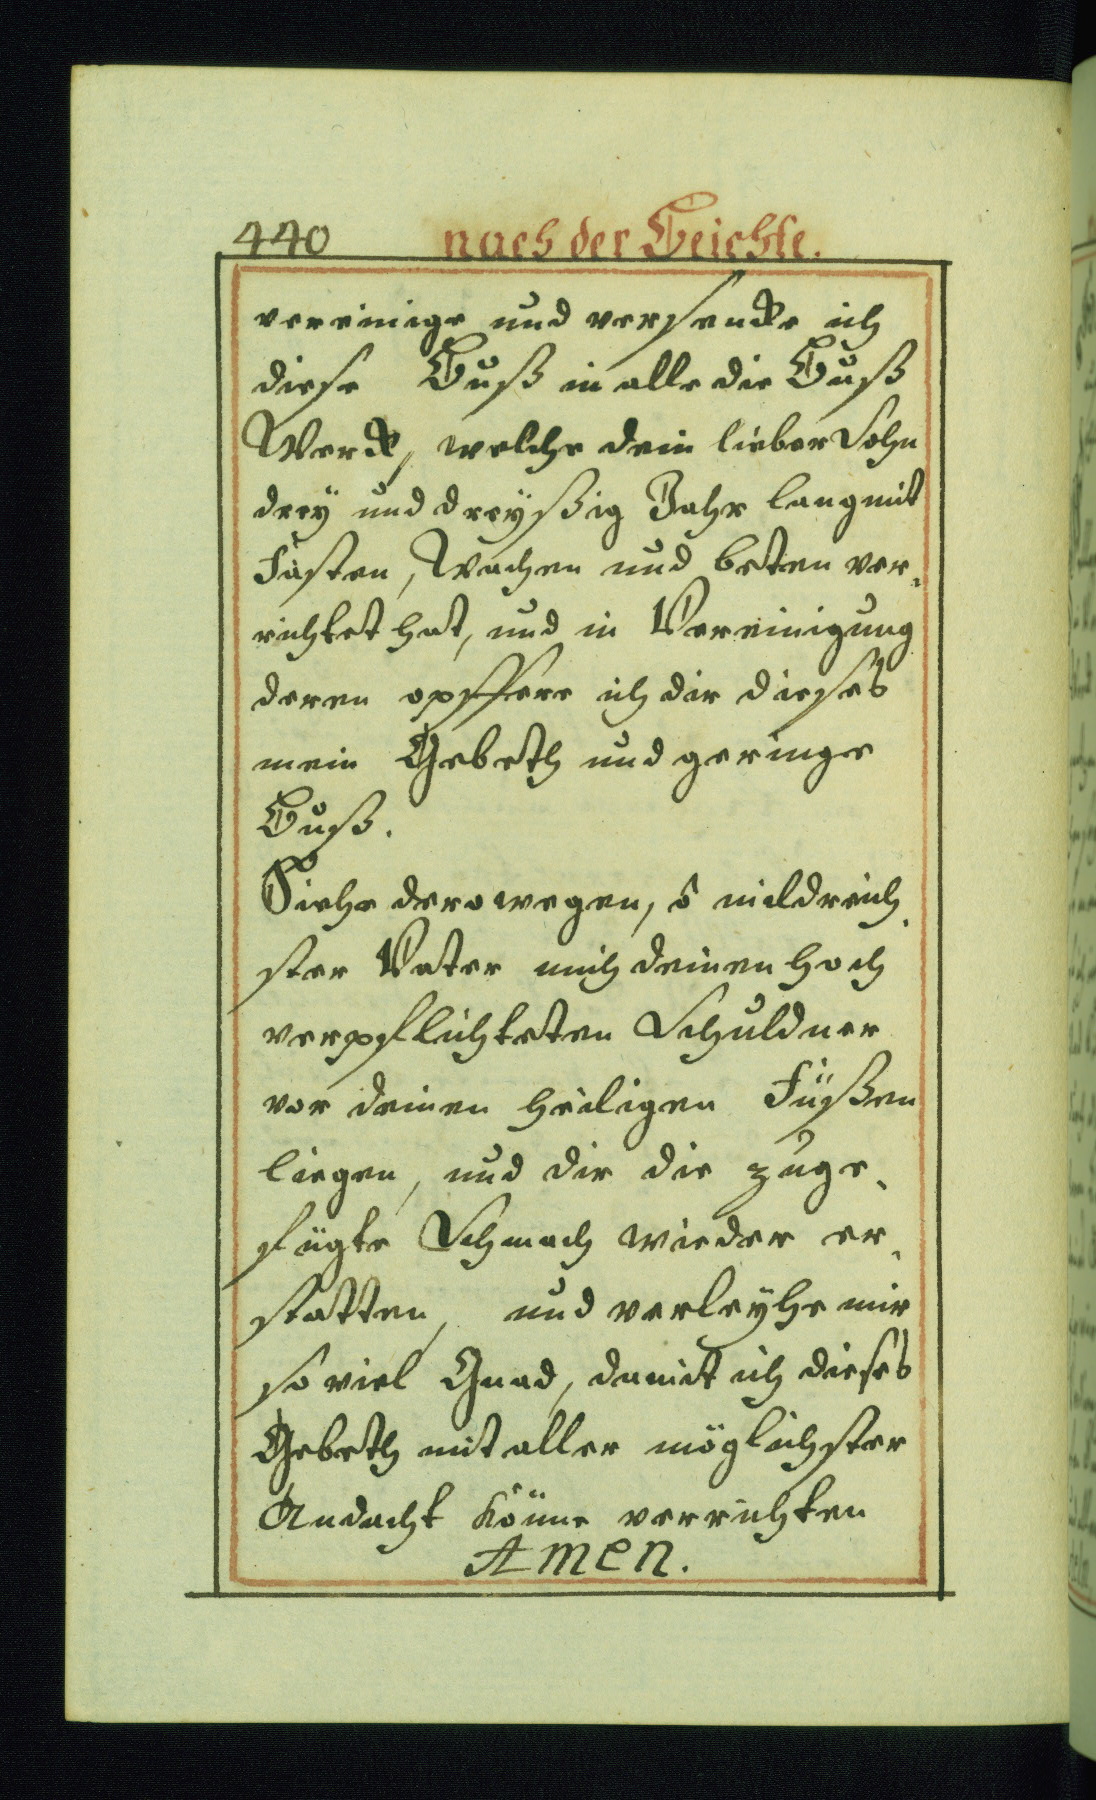 440 nach der Beichte.
vereinige und versencke ich
diese Buß in alle die Buß
Werck, welche dein lieber Sohn
drey und dreÿßig Jahr lang mit
Fasten, Wachen und beten ver,
richtet hat, und in Vereinigung
deren opffere ich dir dieses
mein Gebeth und geringe
Buß.
Siehe derowegen, ô mildreich,
ster Vater mich deinen hoch
verpflichteten Schuldner
vor deinen heiligen Füßen
liegen, und dir die zuge,
fügte Schmach wieder er,
statten, und verleÿhe mir
so viel Gnad, damit ich dieses
Gebeth mit aller möglichster
Andacht könne verrichten
Amen.